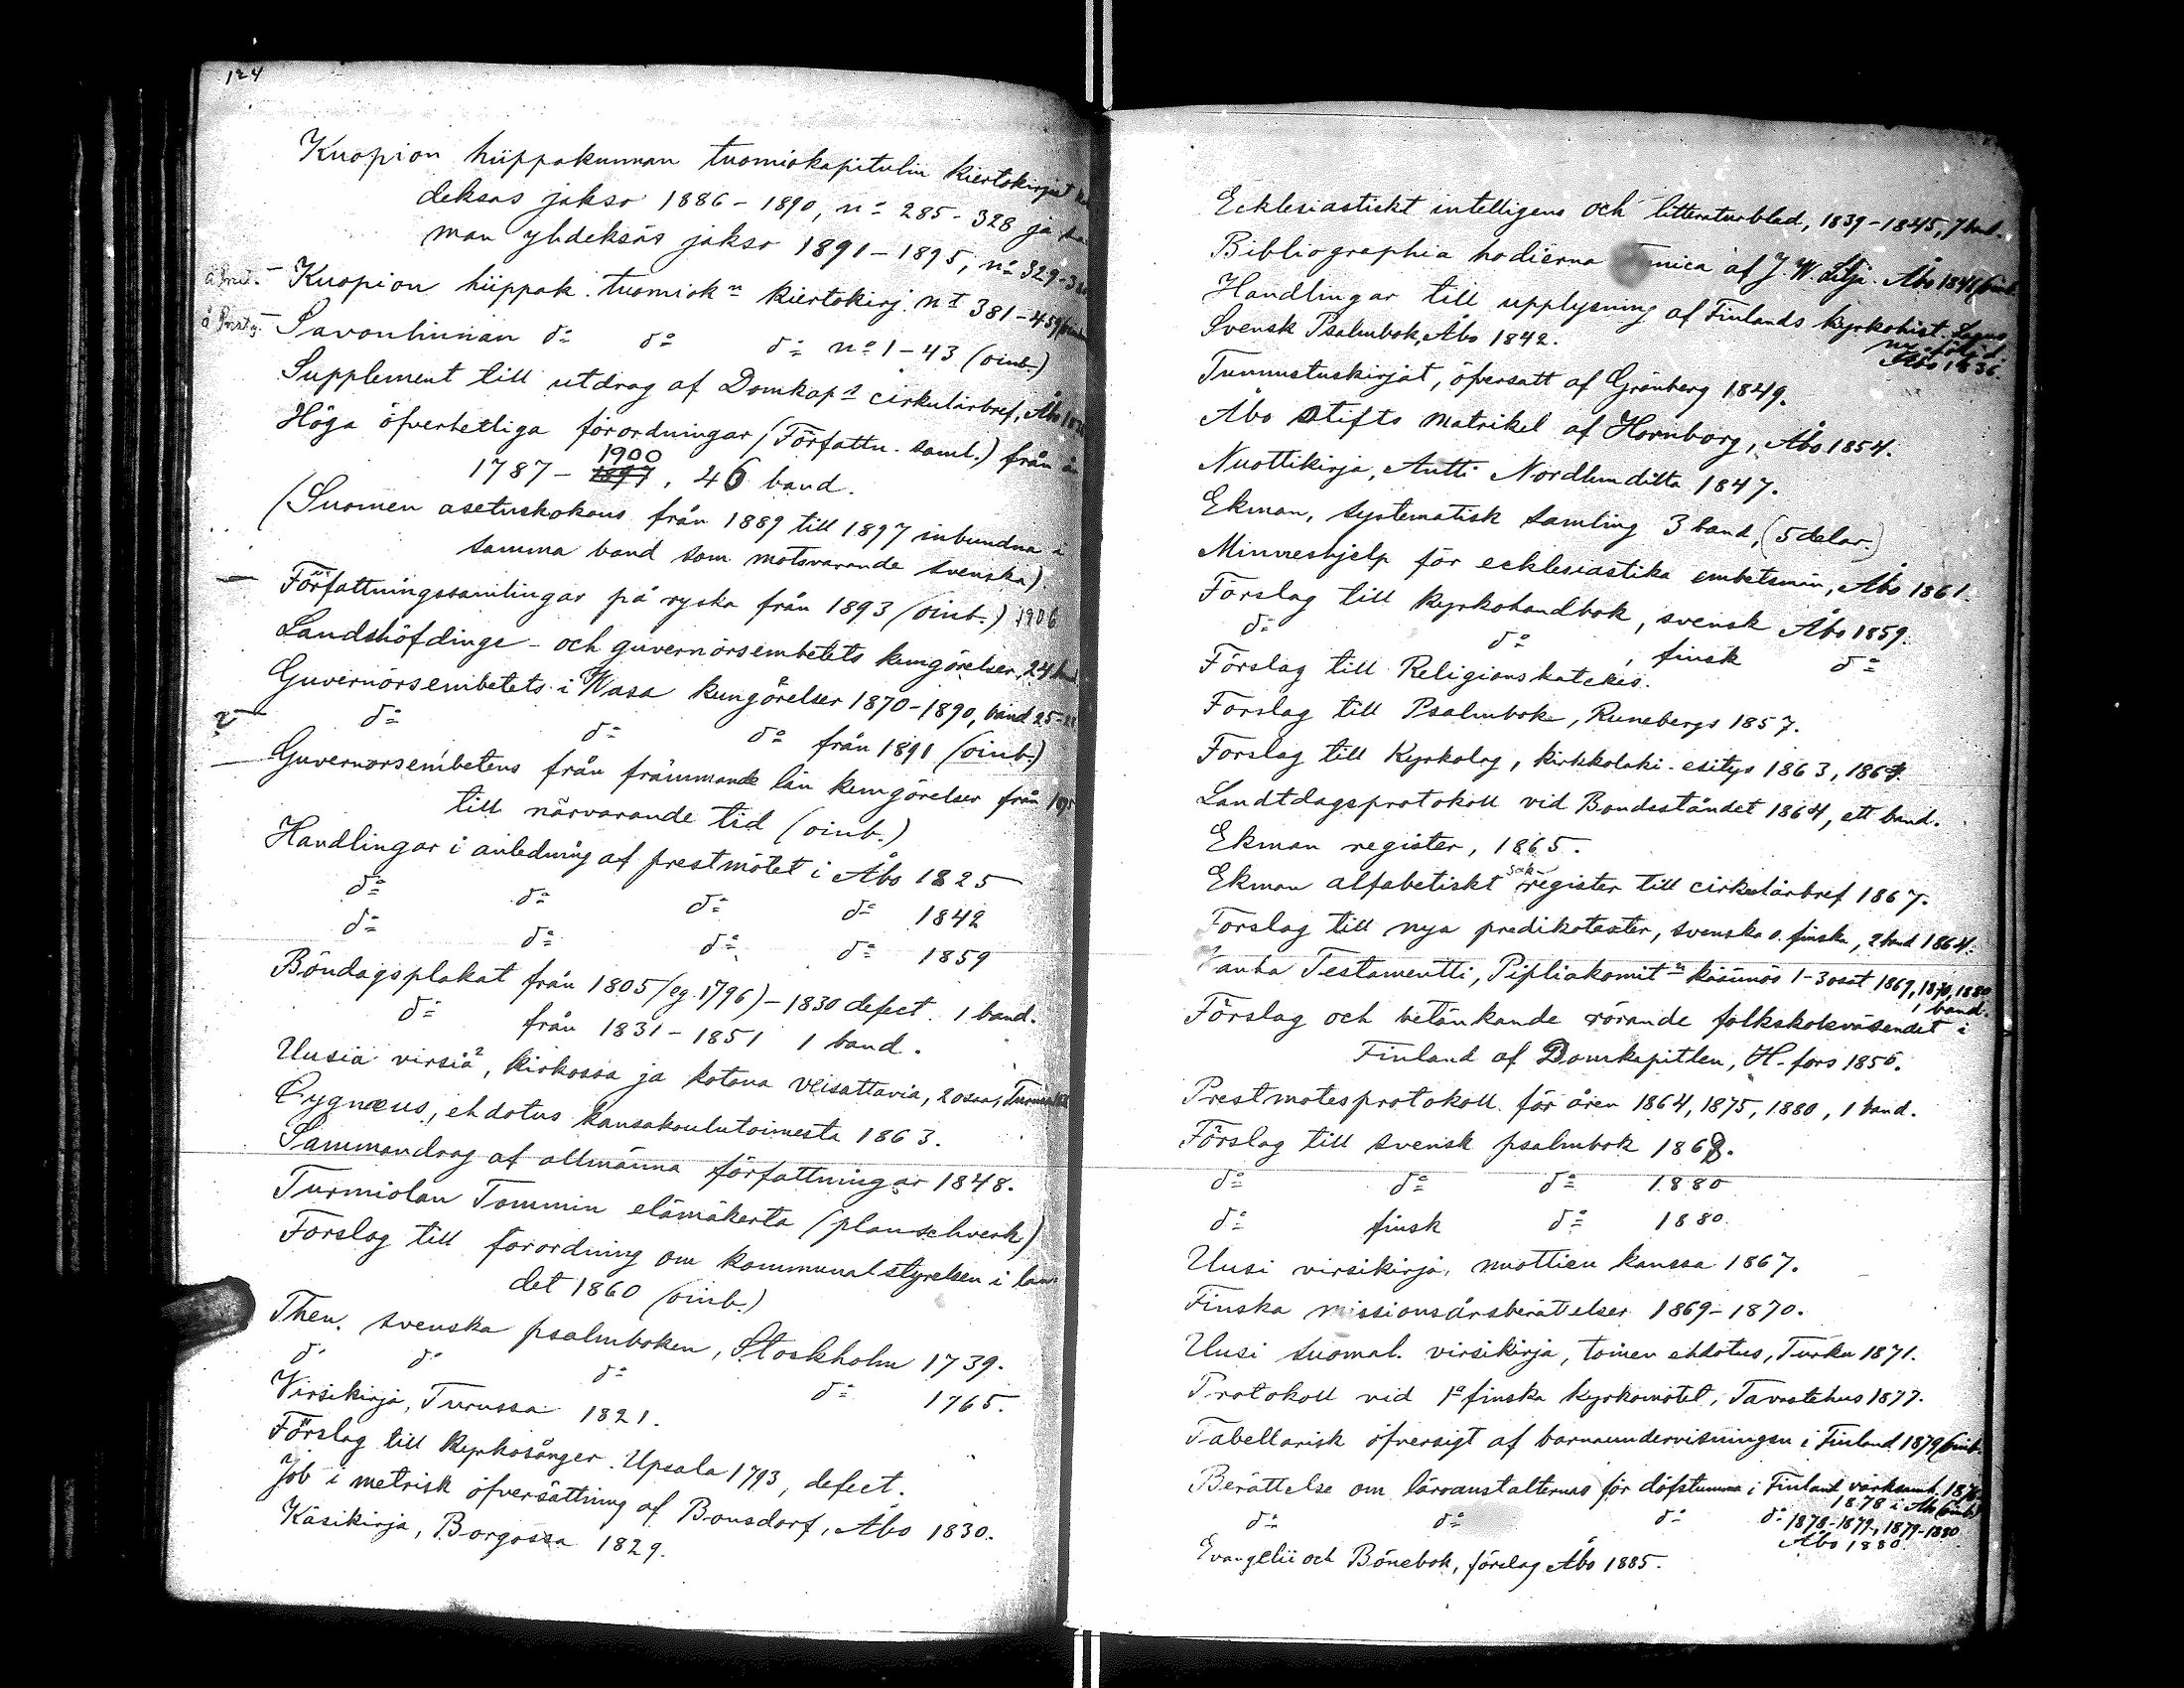 124
Kuopion hiippakunnan tuomiokapitulin kiertokirjat
deksas jakso 1886-1890, nº 285-328 ja sa
man yhdeksäs jakso 1891-1895, nº 329-3
Kuopion hiippak. tuomiok:n kiertokirj. nº 381-459
Savonlinnan dº dº dº nº 1-43 (oinb.)
Supplement till utdrag af Domkap:s cirkulärbref, Åbo
Höga öfverhetliga förordningar (Författn. saml.) från
1900
1787- 1897, 46 band.
(Suomen asetuskokous från 1889 till 1897 inbundna i
samma band som motsvarande svenska)
Författningssamlingar på ryska från 1893 (oinb.) 1906
Landshöfdinge- och guvernörsembetets kungörelser, 24
Guvernörsembetets i Wasa kungörelser 1870-1890, band 25-
dº dº dº från 1891 (oinb.)
Guvernörsembetens från främmande län kungörelser från
till närvarande tid (oinb.)
Handlingar i anledning af prestmötet i Åbo 1825
dº dº dº dº 1842
dº dº dº dº 1859
Böndagsplakat från 1805 (eg. 1796)-1830 defect. 1 band.
dº från 1831-1851 1 band.
Uusia virsiä, kirkossa ja kotona veisattavia, 2 osaa,
Cygnæus, ehdotus kansakoulutoimesta 1863.
Sammandrag af allmänna författningar 1848.
Turmiolan Tommin elämäkerta (planschverk)
Förslag till förordning om kommunalstyrelsen i lan
det 1860 (oinb.)
Then svenska psalmboken, Stockholm 1739.
dº dº dº dº 1765.
Virsikirja, Turussa 1821.
Förslag till kyrkosånger. Upsala 1793, defect.
Job i metrisk öfversättning af Bonsdorf, Åbo 1830.
Käsikirja, Borgossa 1829.
Ecklesiastiskt intelligens och litteraturblad, 1839-1845, 7 band.
Bibliographia hodierna af J. W. Lilja. Åbo
Handlingar till upplysning af Finlands kyrkohist.
ny följd
Åbo 1836.
Svensk Psalmbok, Åbo 1842.
Tunnustuskirjat, öfversatt af Grönberg 1849.
Åbo stifts matrikel af Hornborg, Åbo 1854.
Nuottikirja, Antti Nordlundilta 1847.
Ekman, systematisk samling 3 band, (5 delar.)
Minneshjelp för ecklesiastika embetsmän, Åbo 1861.
Förslag till kyrkohandbok, svensk Åbo 1859.
dº dº, finsk dº
Förslag till Religionskatekes.
Förslag till Psalmbok, Runebergs 1857.
Förslag till Kyrkolag, kirkkolaki-esitys 1863, 1867.
Landtdagsprotokoll vid Bondeståndet 1864, ett band.
Ekman register, 1865.
Ekman alfabetiskt sakregister till cirkulärbref 1867.
Förslag till nya predikotexter, svenska o. finska, 2 band 1864.
Vanha Testamentti, Pipliakomit:n käsännös 1-3 osat 1869, 1870, 1880
1 band.
Förslag och betänkande rörande folkskoleväsendet i
Finland af Domkapitlen, H-fors 1856.
Prestmötesprotokoll för åren 1864, 1875, 1880, 1 band.
Förslag till svensk psalmbok 1868.
dº dº dº 1880
dº finsk dº 1880.
Uusi virsikirja, nuottien kanssa 1867.
Finska missionsårsberättelser 1869-1870.
Uusi suomal. virsikirja, toinen ehdotus, Turku 1871.
Protokoll vid 1ª finska kyrkomötet, Tavastehus 1877.
Tabellarisk öfversigt af barnaundervisningen i Finland 1879 (oinb.
Berättelse om läroanstalternas för döfstumma i Finland värksamh.
1878 i Åbo (oinb.)
dº dº dº dº 1878-1879, 1879-1880
Åbo 1880.
Evangelii och Bönebok, förslag Åbo 1885.